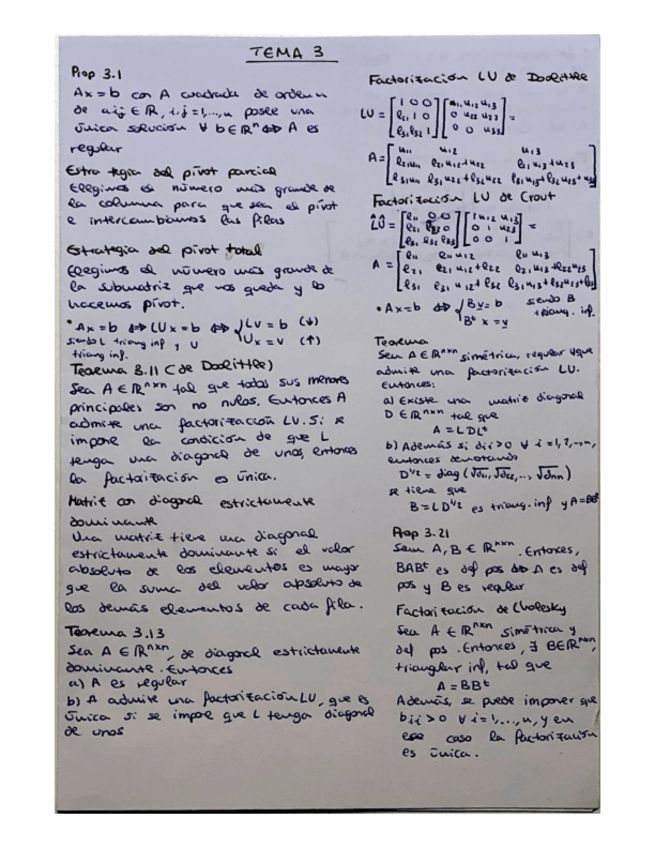 TEMA 3
Prop 3.1
Ax = b con A cuadrada de orden n
de aij ∈ ℝ, i,j = 1,...,n posee una
única solución ∀ b ∈ ℝⁿ ⇔ A es
regular
Estrategia del pivot parcial
Elegimos el número más grande de
la columna para que sea el pivot
e intercambiamos las filas
Estrategia del pivot total
Elegimos el número más grande de
la submatriz que nos queda y lo
hacemos pivot.
• Ax = b ⇔ LUx = b ⇔ { Lv = b (↓)
Ux = v (↑)
siendo L triang inf y U
triang inf.
Teorema 3.11 (de Doolittle)
Sea A ∈ ℝⁿˣⁿ tal que todos sus menores
principales son no nulos. Entonces A
admite una factorización LU. Si se
impone la condición de que L
tenga una diagonal de unos, entonces
la factorización es única.
Matriz con diagonal estrictamente
dominante
Una matriz tiene una diagonal
estrictamente dominante si el valor
absoluto de los elementos es mayor
que la suma del valor absoluto de
los demás elementos de cada fila.
Teorema 3.13
Sea A ∈ ℝⁿˣⁿ, de diagonal estrictamente
dominante. Entonces
a) A es regular
b) A admite una factorización LU, que es
única si se impone que L tenga diagonal
de unos
Factorización LU de Doolittle
LU = [1 0 0] [u11 u12 u13] =
[l21 1 0] [0 u22 u23]
[l31 l32 1] [0 0 u33]
A = [u11 u12 u13]
[l21u11 l21u12+u22 l21u13+u23]
Factorización LU de Crout
L̂Û = [l11 0 0] [1 u12 u13] =
[0 1 u23]
[l31 l32 l33] [0 0 1]
A = [l11 l11u12 l11u13]
[l21 l21u12+l22 l21u13+l22u23]
[l31 l31u12+l32
• Ax = b ⇔ { By = b siendo B
Bᵗx = y triang. inf.
Teorema
Sea A ∈ ℝⁿˣⁿ simétrica, regular y que
admite una factorización LU.
Entonces:
a) Existe una matriz diagonal
D ∈ ℝⁿˣⁿ tal que
A = LDLᵗ
b) Además si dii > 0 ∀ i = 1,2,...,n,
entonces denotando
D^1/2 = diag (√d11, √d22, ..., √dnn)
se tiene que
B = LD^1/2 es triang. inf y A = BBᵗ
Prop 3.21
Sean A, B ∈ ℝⁿˣⁿ. Entonces,
BABᵗ es def pos ⇔ A es def
pos y B es regular
Factorización de Cholesky
Sea A ∈ ℝⁿˣⁿ simétrica y
def pos. Entonces, ∃ B ∈ ℝⁿˣⁿ,
triangular inf, tal que
A = BBᵗ
Además, se puede imponer que
bii > 0 ∀ i = 1,...,n, y en
ese caso la factorización
es única.